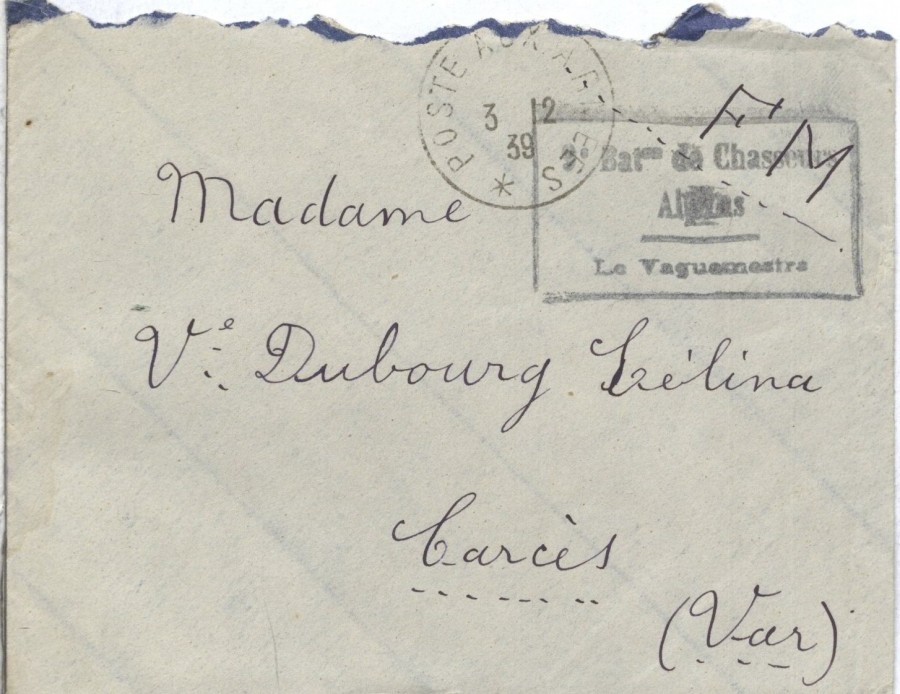 POSTE AUX ARMEES
3 12
39
F M
Bat^on de Chasseurs
Alpins
Le Vaguemestre
Madame
V^e Dubourg Zélina
Carcès
(Var)